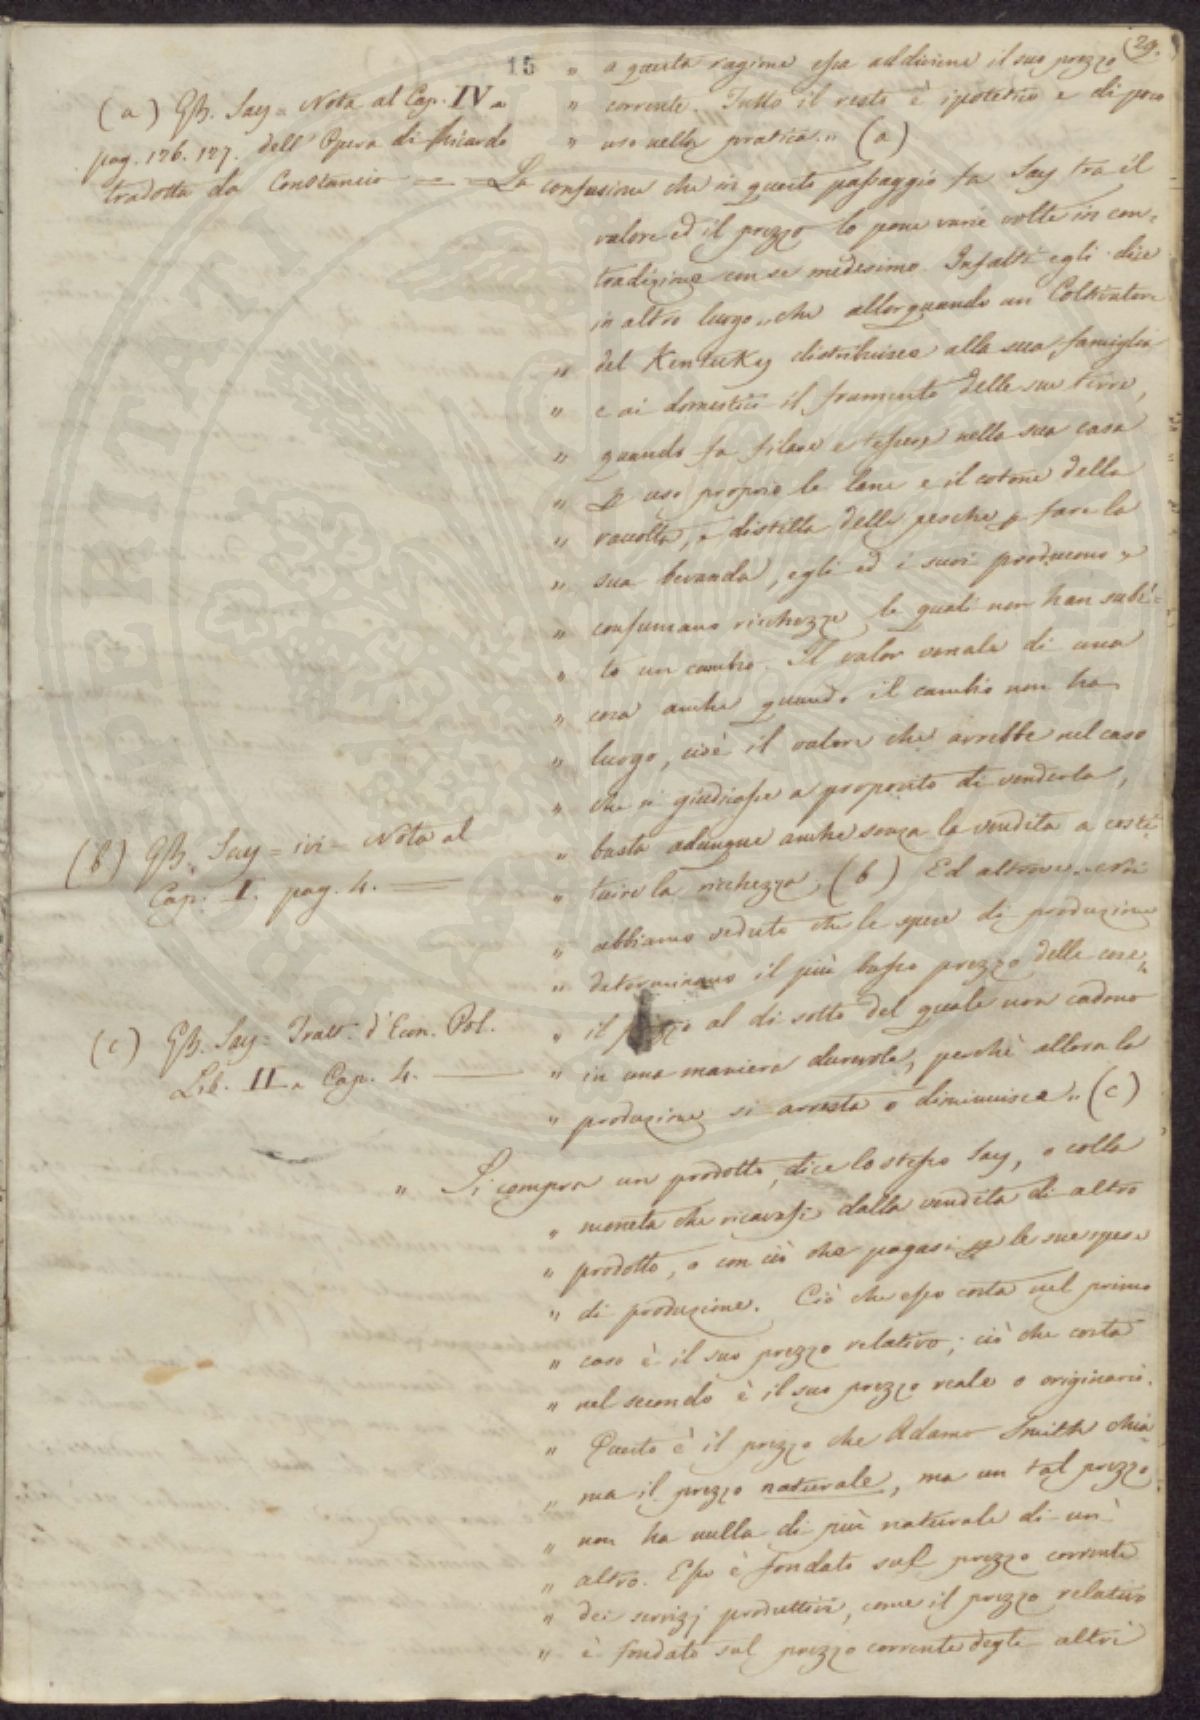 15
29.
" a questa ragione essa addiviene il suo prezzo
" corrente. Tutto il resto è ipotetico e di poco
" uso nella pratica." (a)
(a) GB. Say = Nota al Cap. IV a
pag. 126. 127. dell'Opera di Ricardo
tradotta da Constancio
La confusione che in questo passaggio fa Say tra il
valore ed il prezzo lo pone varie volte in con=
tradizione con se medesimo. Infatti egli dice
in altro luogo " che allorquando un Coltivatore
" del KentuKy distribuisce alla sua famiglia
" e ai domestici il frumento delle sue terre,
" quando fa filare e tessere nella sua casa
" p uso proprio le lane e il cotone della
" raccolta, o distilla delle pesche p fare la
" sua bevanda, egli ed i suoi producono e
" consumano ricchezze le quali non han subi=
" to un cambio. Il valor venale di una
" cosa anche quando il cambio non ha
" luogo, cioè il valore che avrebbe nel caso
" che si giudicasse a proposito di venderla,
" basta adunque anche senza la vendita a costi
" tuire la ricchezza. (b) Ed altrove
(b) GB. Say = ivi = Nota al
Cap. I. pag. 4.
" abbiamo veduto che le spese di produzione
" determinano il più basso prezzo delle cose,
" il prezzo al di sotto del quale non cadono
" in una maniera durevole, perchè allora la
" produzione si arresta o diminuisce." (c)
(c) GB. Say = Tratt. d'Econ. Pol.
Lib. II a Cap. 4.
" Si compra un prodotto, dice lo stesso Say, o colla
" moneta che ricavasi dalla vendita di altro
" prodotto, o con ciò che pagasi p le sue spese
" di produzione. Ciò che esso costa nel primo
" caso è il suo prezzo relativo; ciò che costa
" nel secondo è il suo prezzo reale o originario.
" Questo è il prezzo che Adamo Smith chia
" ma il prezzo naturale, ma un tal prezzo
" non ha nulla di più naturale di un'
" altro. Esso è fondato sul prezzo corrente
" dei servizj produttivi, come il prezzo relativo
" è fondato sul prezzo corrente degli altri